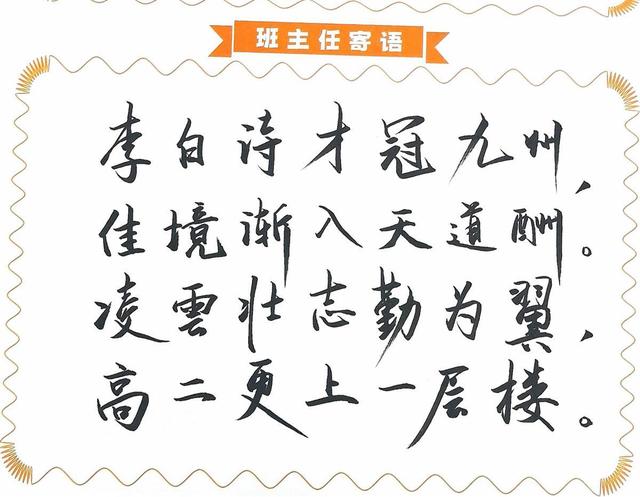 班主任寄语
李白诗才冠九州，
佳境渐入天道酬。
凌雲壮志勤为翼，
高二更上一层楼。